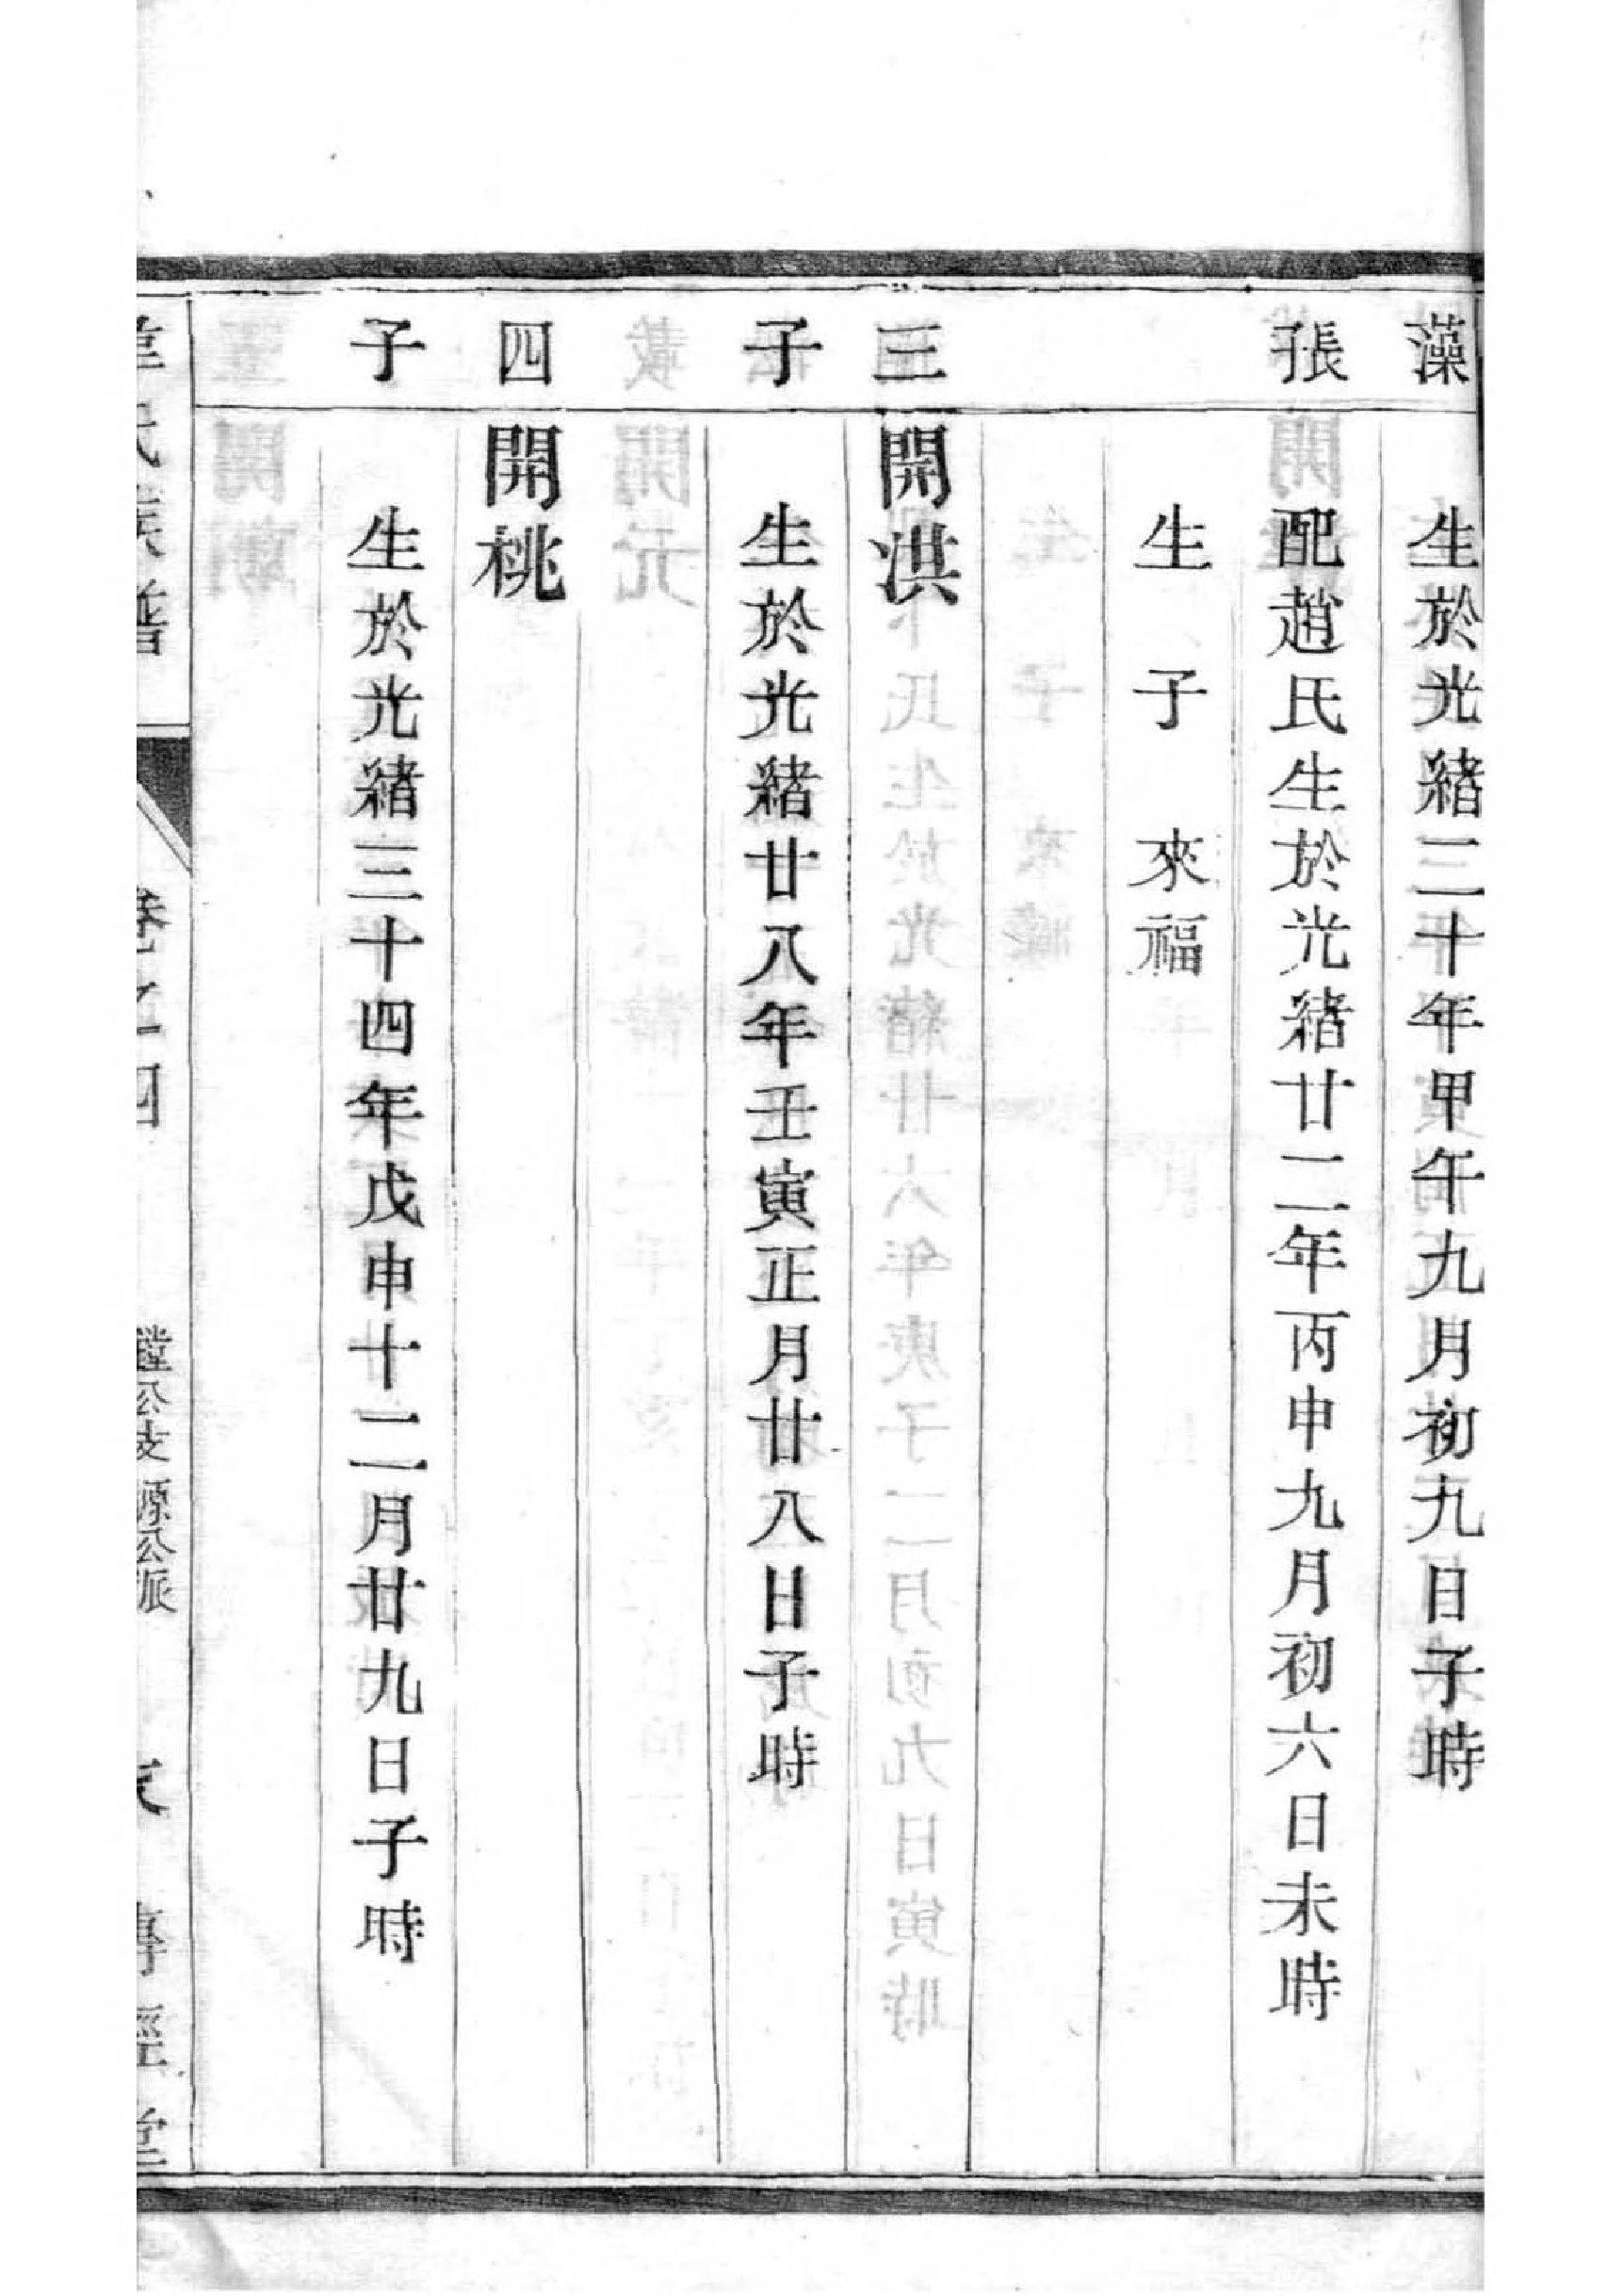 藻 生於光緒二十年甲午九月初九日子時
張 配趙氏生於光緒廿二年丙申九月初六日未時
生子來福
三 開洪
子 生於光緒廿八年壬寅正月廿八日子時
四 開桃
子 生於光緒三十四年戊申十二月廿九日子時
氏族譜 卷之四 公支源公派 傳經堂